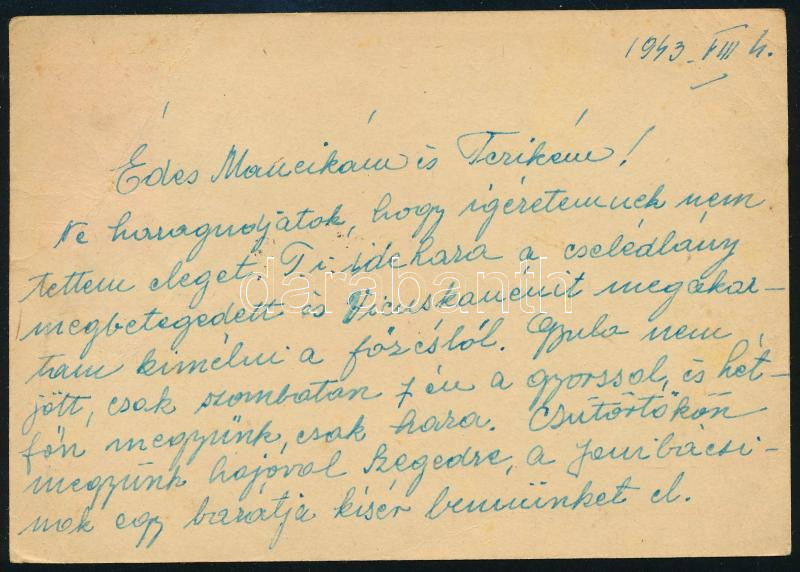 1943. VIII 4.
Édes Mancikám és Terikém!
Ne haragudjatok, hogy igéretemnek nem
tettem eleget. T.i. idehaza a cselédlány
megbetegedett és Vicuskanénit megakar-
tam kimélni a főzéstől. Gyula nem
jött, csak szombatan 7 én a gyorssal, és hét-
főn megyünk, csak haza. Csütörtökön
megyünk hajóval Szegedre, a Jenibácsi-
nak egy barátja kisér bennünket el.
darabanth